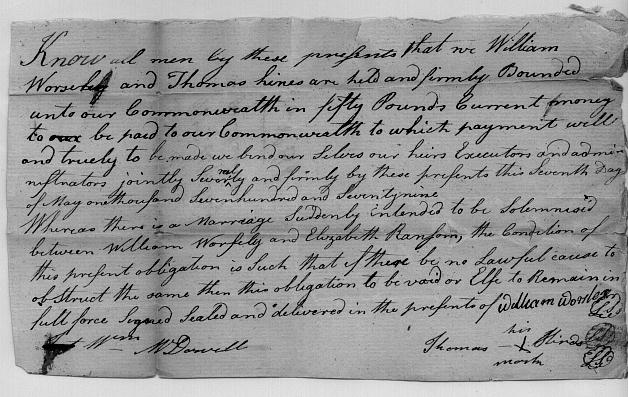 Know all men by these presents that we William
Worseley and Thomas hines are held and firmly Bounded
unto our Commonwealth in fifty Pounds Current money
to be paid to our Commonwealth to which payment well
and truely to be made we bind our Selves our heirs Executors and admi
nistrators jointly Severally and firmly by these presents this Seventh Day
of May one thousand Seven hundred and Seventy nine
Whereas there is a Marriage Suddenly intended to be Solemnised
between William Worsely and Elizabeth Ransom, the Condition of
this present obligation is Such that if there be no Lawful cause to
obstruct the same then this obligation to be void or Else to Remain in
full force Signed Sealed and delivered in the presents of William Worley
Wm McDowell Thomas his X mark Hinds